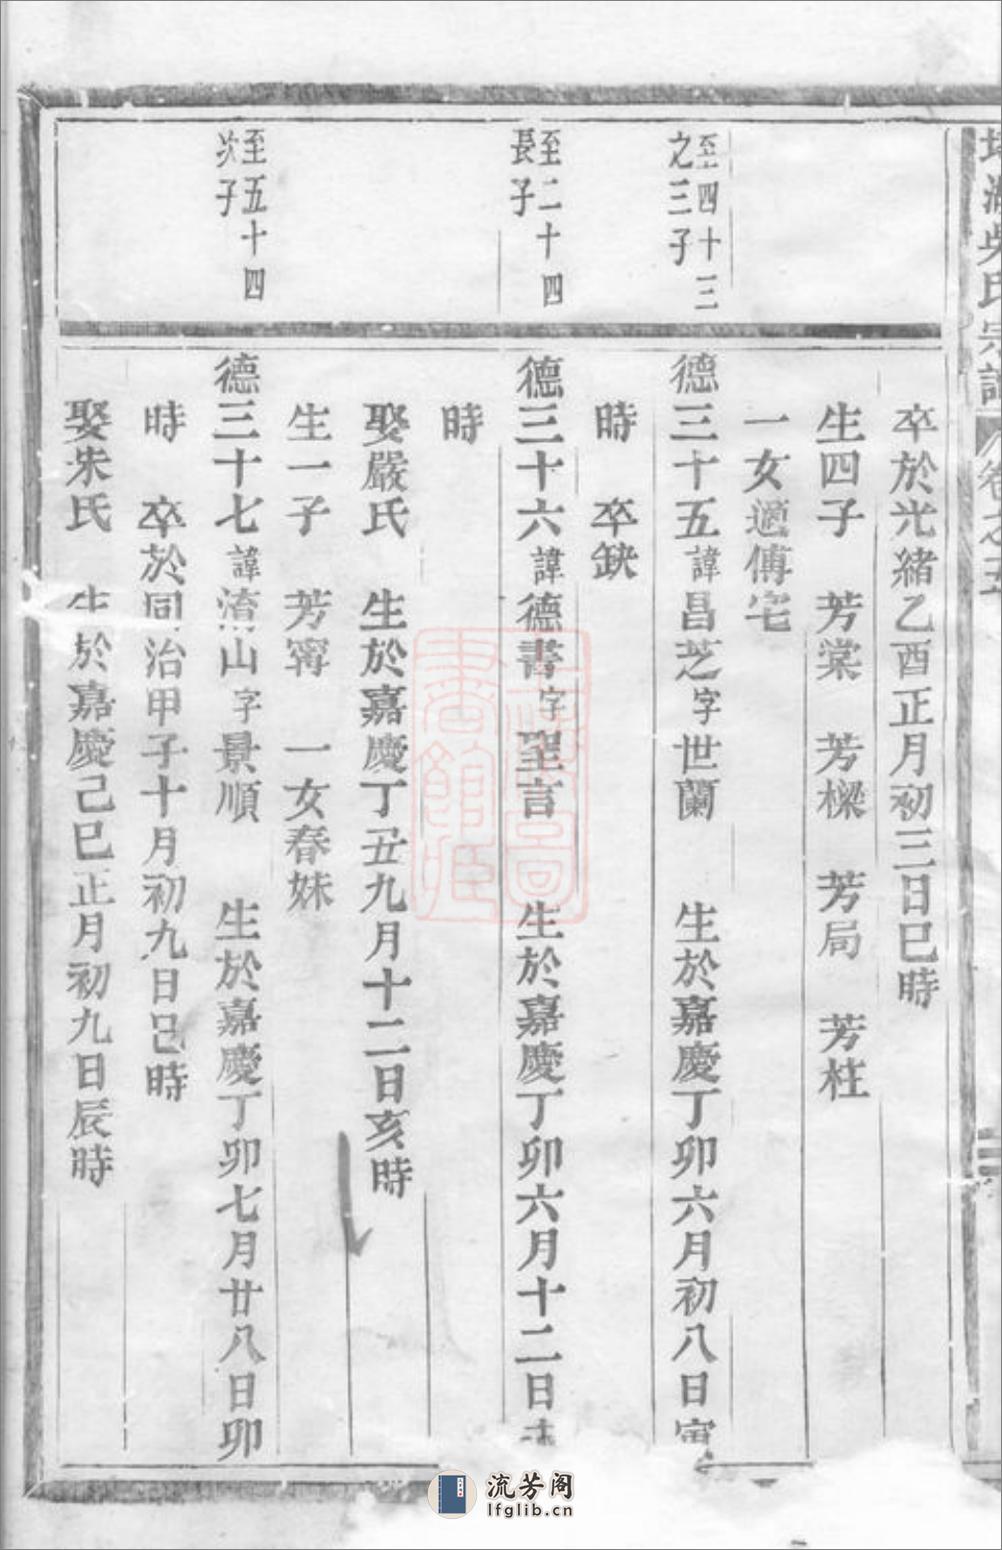 吳氏宗譜 卷之五
卒於光緒乙酉正月初三日巳時
生四子 芳棠 芳樑 芳局 芳柱
一女適傅宅
至四十三
之三子
德三十五諱昌芝字世蘭 生於嘉慶丁卯六月初八日寅
時 卒缺
至二十四
長子
德三十六諱德書字聖言 生於嘉慶丁卯六月十二日
時
娶嚴氏 生於嘉慶丁丑九月十二日亥時
生一子 芳甯 一女春妹
至五十四
次子
德三十七諱清山字景順 生於嘉慶丁卯七月廿八日卯
時 卒於同治甲子十月初九日巳時
娶朱氏 生於嘉慶己巳正月初九日辰時
流芳阁
lfglib.cn